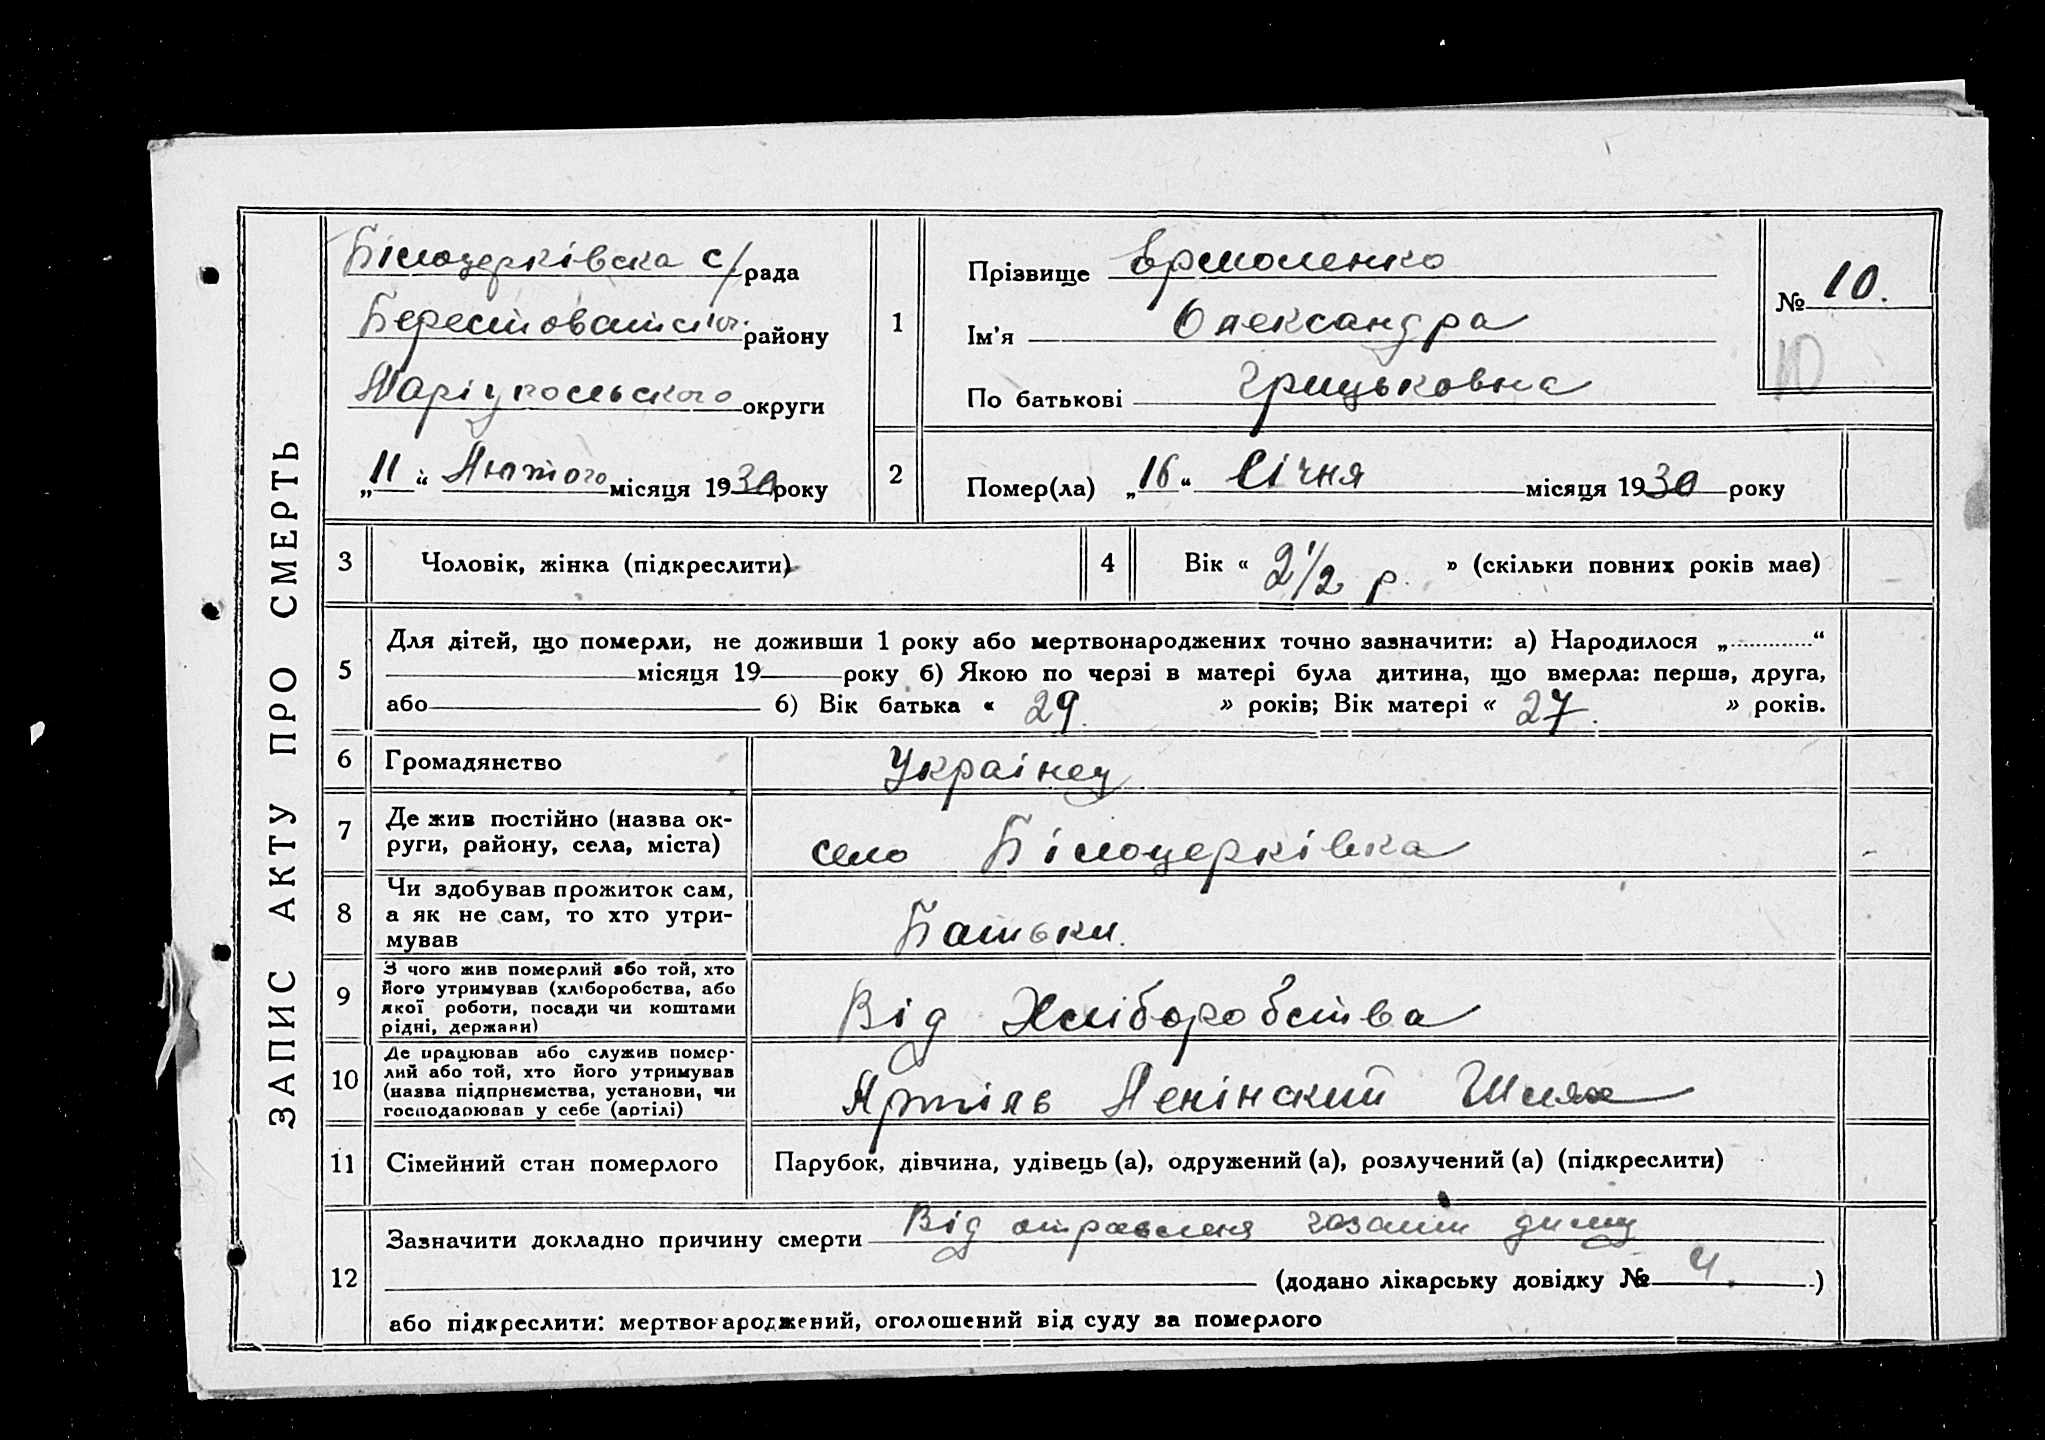 ЗАПИС АКТУ ПРО СМЕРТЬ
Білоцерківска с/рада
Берестоватськ. району
Маріупольського округи
„11“ Лютого місяця 1930 року
1
Прізвище Єрмоленко
Ім'я Олександра
По батькові Грицьковна
№ 10.
10
2
Помер(ла) „16“ Січня місяця 1930 року
3
Чоловік, жінка (підкреслити)
4
Вік « 2 1/2 р. » (скільки повних років має)
5
Для дітей, що померли, не доживши 1 року або мертвонароджених точно зазначити: а) Народилося „............“
місяця 19 року б) Якою по черзі в матері була дитина, що вмерла: перша, друга,
або 6) Вік батька « 29. » років; Вік матері « 27. » років.
6
Громадянство
Украінец
7
Де жив постійно (назва ок-
руги, району, села, міста)
село Білоцерківка
8
Чи здобував прожиток сам,
а як не сам, то хто утри-
мував
Батьки.
9
З чого жив померлий або той, хто
його утримував (хліборобства, або
якої роботи, посади чи коштами
рідні, держави)
Від Хліборобства
10
Де працював або служив помер-
лий або той, хто його утримував
(назва підприємства, установи, чи
господарював у себе (артілі)
Артіль Ленінский Шлях
11
Сімейний стан померлого
Парубок, дівчина, удівець (а), одружений (а), розлучений (а) (підкреслити)
12
Зазначити докладно причину смерти Від отравленя газами диму
(додано лікарську довідку № 4. )
або підкреслити: мертвонароджений, оголошений від суду за померлого